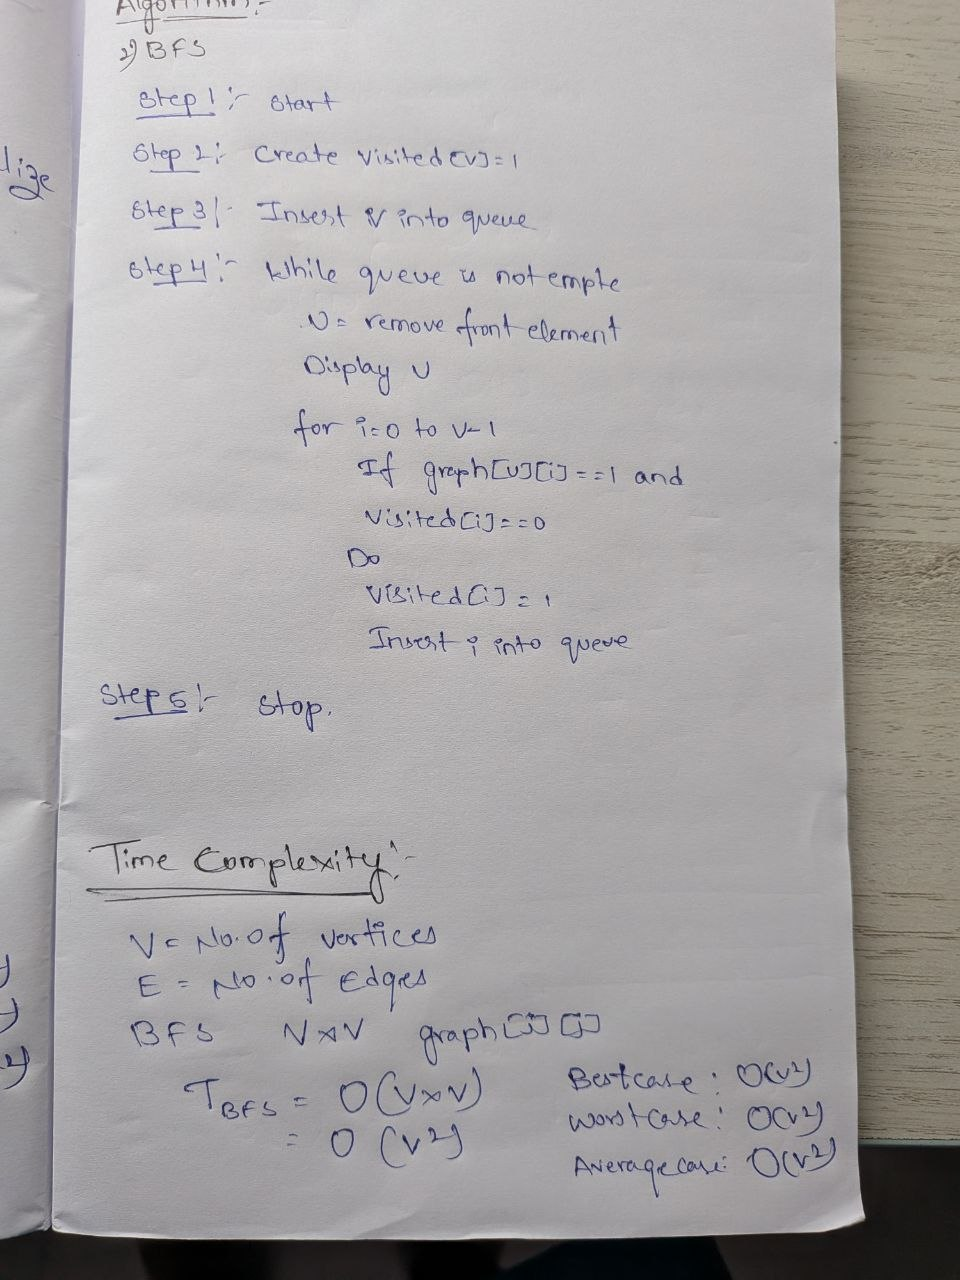 Algorithm:-
2) BFS
Step 1:- Start
Step 2:- Create Visited[v]=1
Step 3:- Insert v into queue
Step 4:- While queue is not empte
v = remove front element
Display v
for i=0 to v-1
If graph[v][i]==1 and
Visited[i]==0
Do
Visited[i]=1
Insert i into queue
Step 5:- Stop.
Time Complexity:-
V = No. of vertices
E = No. of Edges
BFS V×V graph[i][j]
T BFS = O(V×V)
= O(v²)
Best case: O(v²)
Worst case: O(v²)
Average case: O(v²)